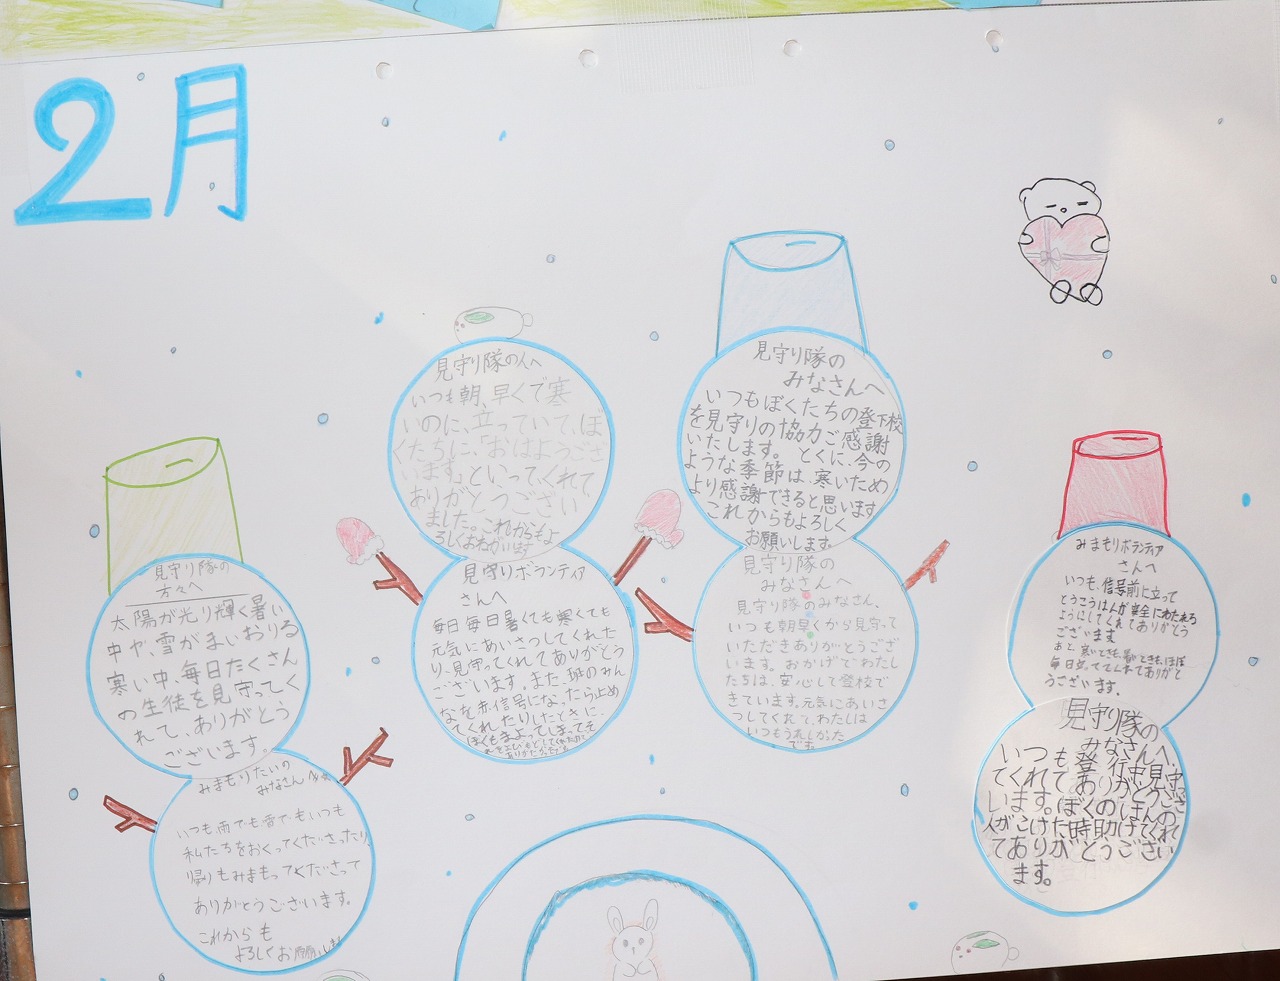 2月
見守り隊の
方々へ
太陽が光り輝く暑い
中や、雪がまいおりる
寒い中、毎日たくさん
の生徒を見守ってく
れて、ありがとう
ございます。
みまもりたいの
みなさんへ
いつも雨でも雪でもいつも
私たちをおくってくださったり、
帰りもみまもってくださって
ありがとうございます。
これからも
よろしくお願いします
見守り隊の人へ
いつも朝、早くで寒
いのに、立っていて、ぼ
くたちに、「おはようござ
います」といってくれて
ありがとうござい
ました。これからもよ
ろしくおねがいします
見守りボランティア
さんへ
毎日毎日暑くても寒くても
元気にあいさつしてくれた
り、見守ってくれてありがとう
ございます。また、班のみん
なを赤信号になったら止め
てくれたりしたときに、
ぼくもまよってしまってそ
ありがたかったです
見守り隊の
みなさんへ
いつもぼくたちの登下校
を見守りの協力ご感謝
いたします。とくに、今の
ような季節は、寒いため
より感謝できると思います
これからもよろしく
お願いします。
見守り隊の
みなさんへ
見守り隊のみなさん、
いつも朝早くから見守って
いただきありがとうござ
います。おかげでわたし
たちは、安心して登校で
きています。元気にあいさ
つしてくれて、わたしは
いつもうれしかった
です。
みまもりボランティア
さんへ
いつも、信号前に立って
とうこうはんが安全にわたれる
ようにしてくれてありがとう
ございます
あと、寒いときも、暑いときも、ほぼ
毎日立っててくれてありがと
うございます。
見守り隊の
みなさんへ、
いつも登行中、見守っ
てくれてありがとうござ
います。ぼくのはんの
人がこけた時助けてくれ
てありがとうござい
ます。